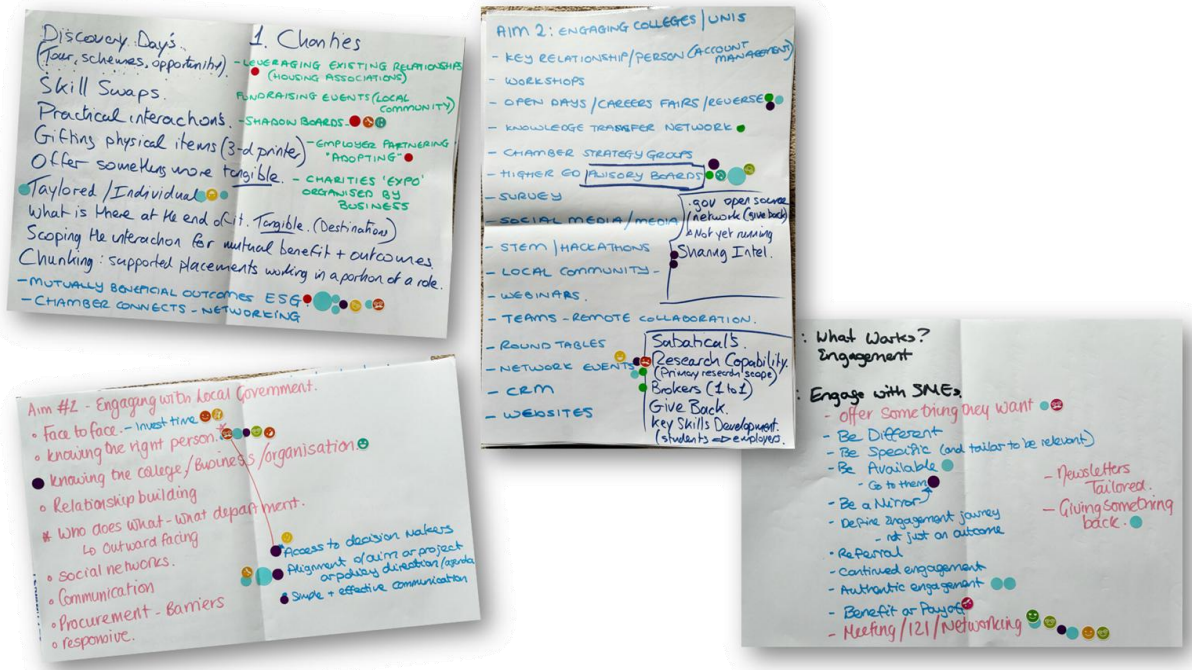 Discovery Day's.
(Tour, schemes, opportunity).
Skill Swaps.
Practical interachons.
Gifting physical items (3-d printer)
Offer something more tangible.
Taylored / Individual
What is there at the end of it. Tangible. (Destinations)
Scoping the interachon for mutual benefit + outcomes.
Chunking: supported placements working in a portion of a role.
- MUTUALLY BENEFICIAL OUTCOMES ESG
- CHAMBER CONNECTS - NETWORKING
1. Charities
- LEVERAGING EXISTING RELATIONSHIPS
(HOUSING ASSOCIATIONS)
FUNDRAISING EVENTS (LOCAL
COMMUNITY)
- SHADOW BOARDS
- EMPLOYER PARTNERING
"ADOPTING"
- CHARITIES 'EXPO'
ORGANISED BY
BUSINESS
AIM 2: ENGAGING COLLEGES / UNIS
- KEY RELATIONSHIP/PERSON (ACCOUNT
MANAGEMENT)
- WORKSHOPS
- OPEN DAYS / CAREERS FAIRS / REVERSE
- KNOWLEDGE TRANSFER NETWORK
- CHAMBER STRATEGY GROUPS
- HIGHER ED ADVISORY BOARDS
- SURVEY
- SOCIAL MEDIA / MEDIA
- STEM / HACKATHONS
- LOCAL COMMUNITY -
- WEBINARS.
- TEAMS - REMOTE COLLABORATION.
- ROUND TABLES
- NETWORK EVENTS
- CRM
- WEBSITES
.gov open source
network (give back)
Not yet running
Sharing Intel.
Sabatical's.
Research Capability.
(Primary research scope)
Brokers (1 to 1)
Give Back.
Key Skills Development.
(students employers.
Aim #2 - Engaging with Local Government.
Face to face. - Invest time
Knowing the right person.
Knowing the college / Business / organisation.
Relationship building
* Who does what - what department.
Outward facing
Social networks.
Communication
Procurement - Barriers
responsive.
Access to decision makers
Alignment of aim or project
or policy direction/agenda
Simple + effective communication
: What Works?
Engagement
: Engage with SMEs.
- Offer something they want
- Be Different
- Be Specific (and tailor to be relevant)
- Be Available
- Go to them
- Be a Mirror
- Define Engagement journey
- not just an outcome
- Referral
- Continued engagement
- Authentic engagement
- Benefit or Payoff
- Meeting / 121 / Networking
- Newsletters
Tailored.
- Giving Something
back.